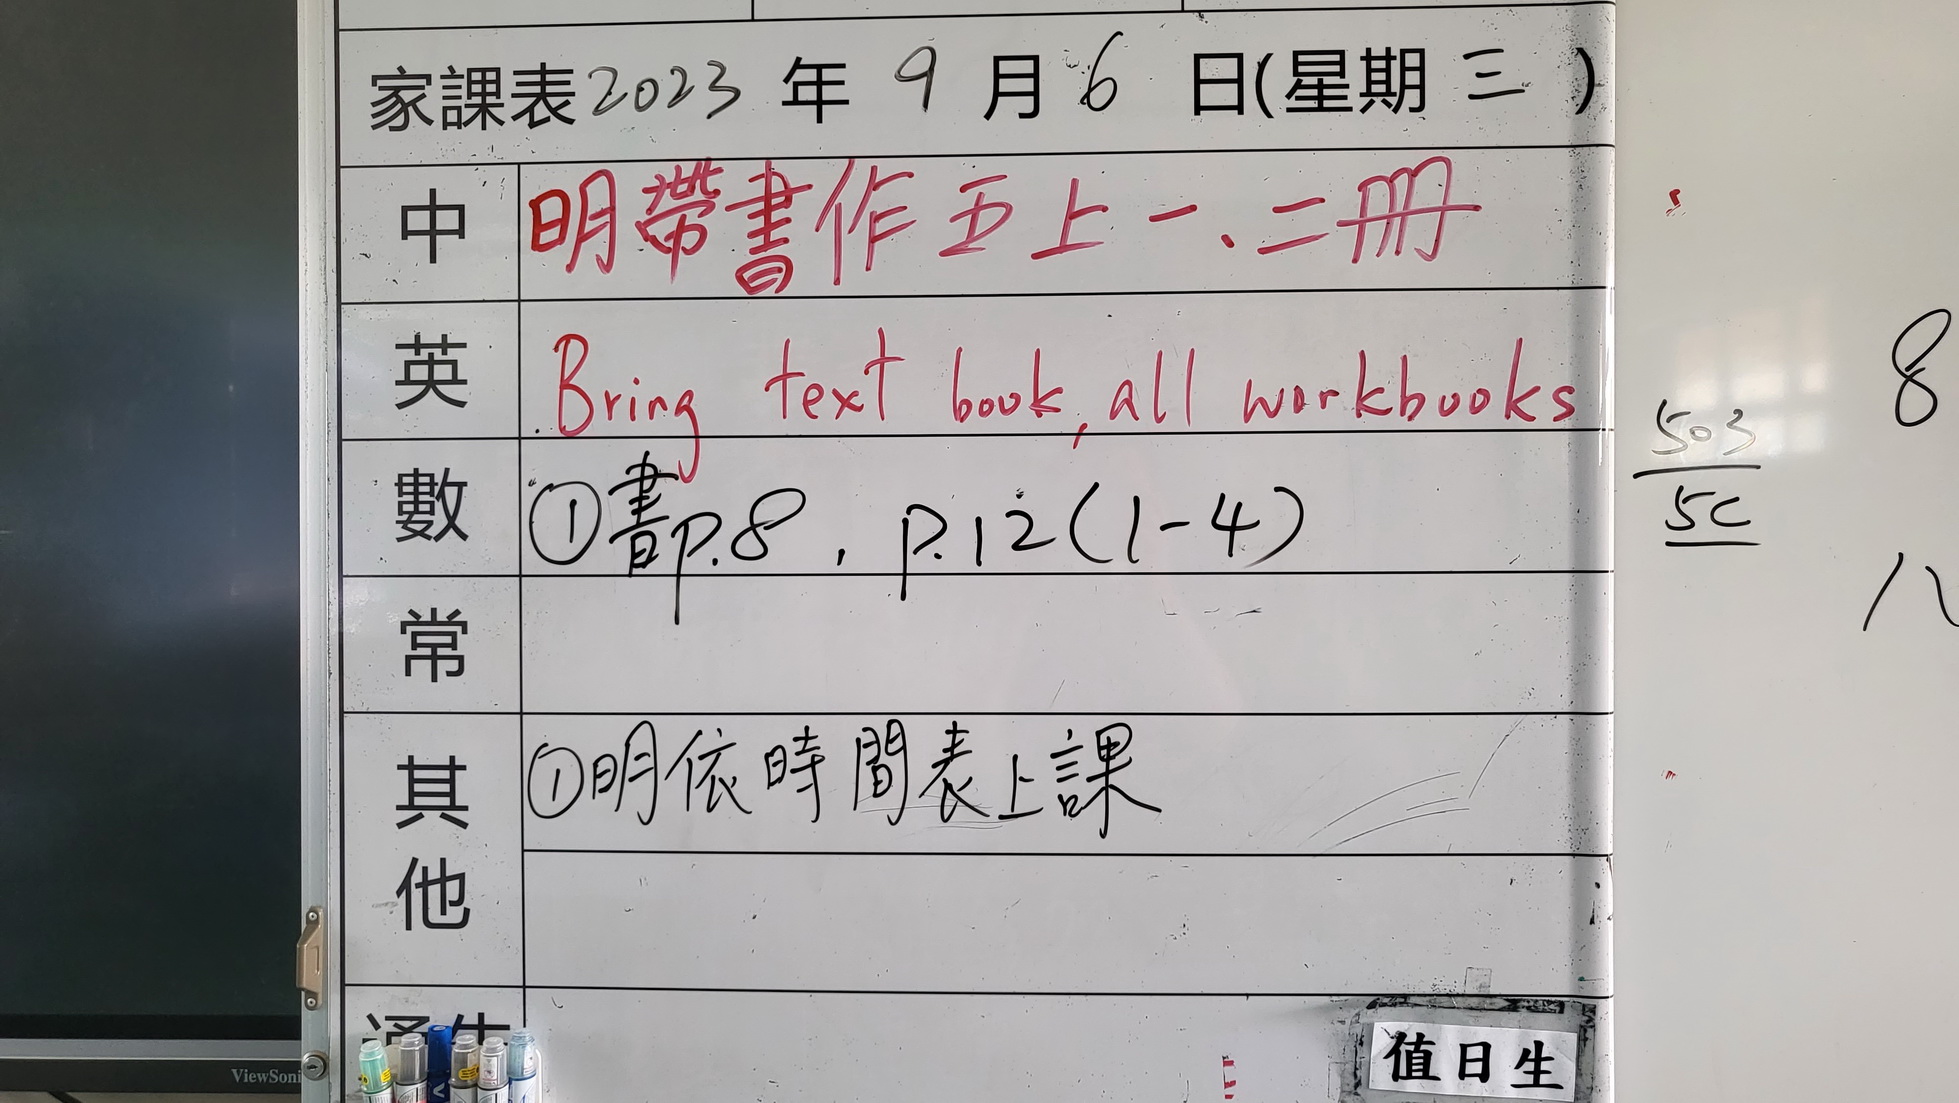 家課表 2023 年 9 月 6 日(星期 三 )
中 明帶書作五上一、二冊
英 Bring text book, all workbooks
數 ①書p.8, p.12(1-4)
常
其他 ①明依時間表上課
值日生
503
5C
8
八
ViewSoni